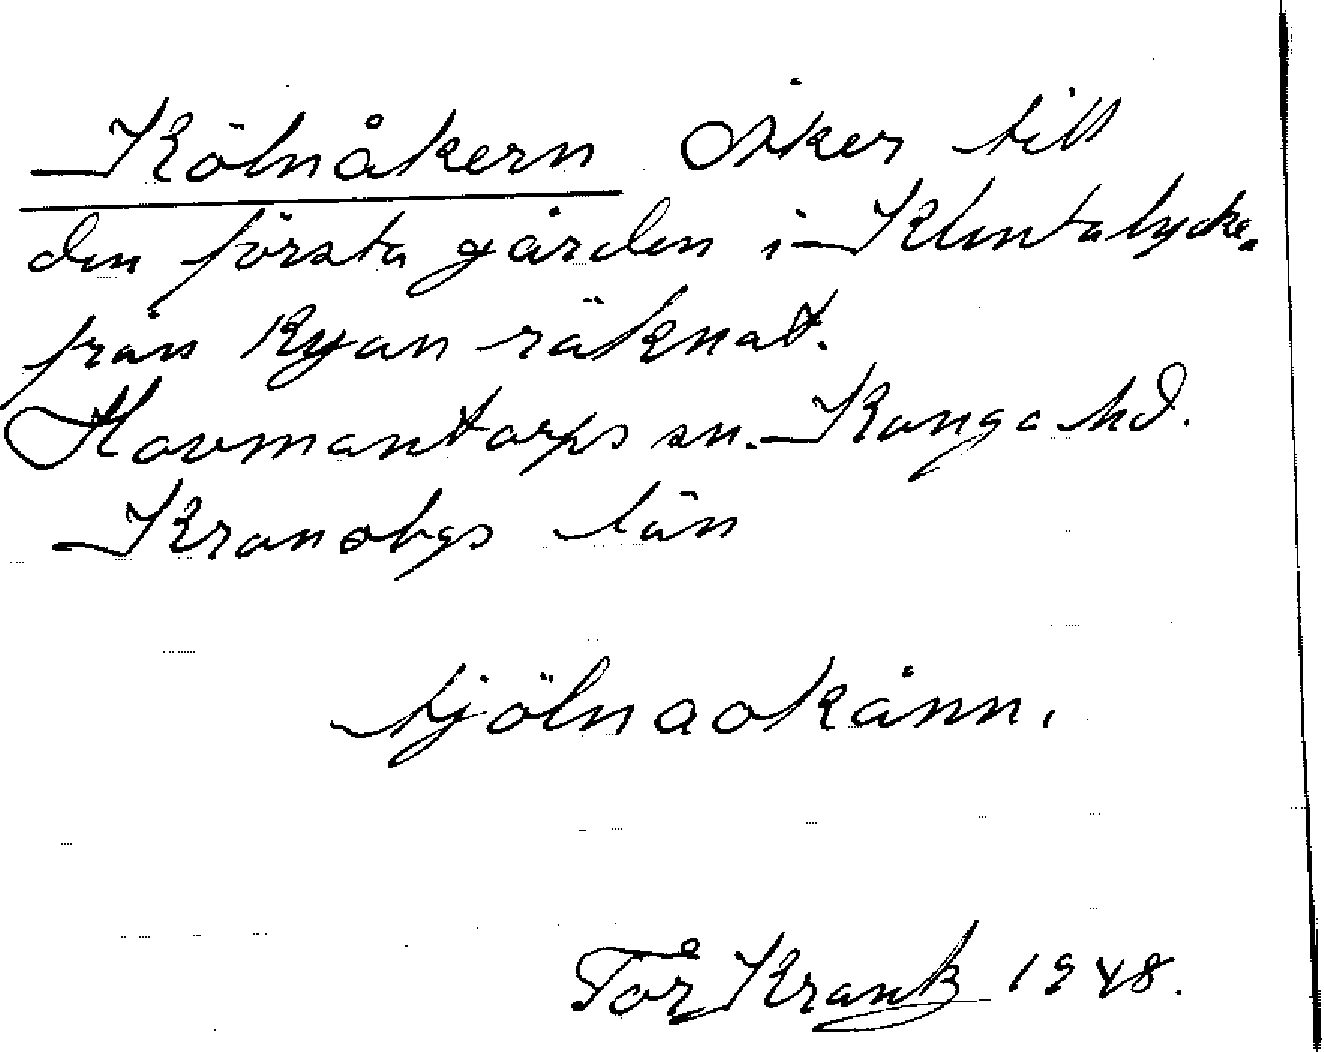 Kölnåkern Åker till
den första gården i Klintalycke.
från Ryan räknat.
Hovmantorps sn. Konga hd.
Kronobgs län
tjölnaokånn.
Tor Krank 1948.